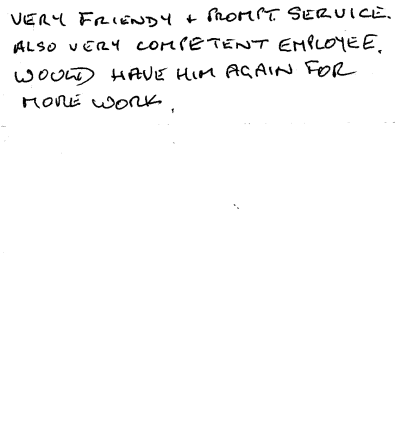 VERY FRIENDY + PROMPT SERVICE.
ALSO VERY COMPETENT EMPLOYEE.
WOULD HAVE HIM AGAIN FOR
MORE WORK.